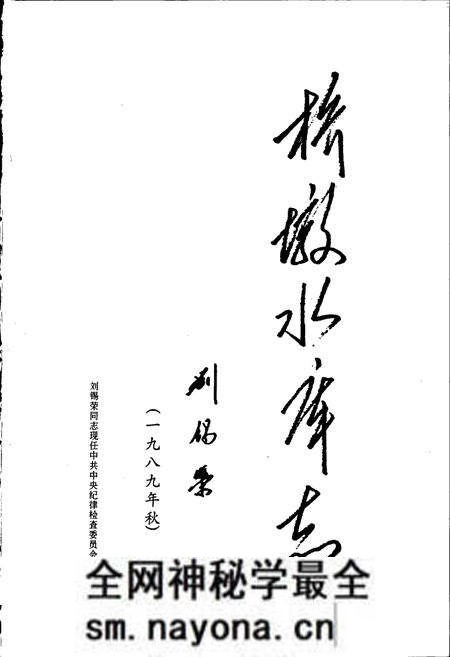 桥墩水库志
刘锡荣
(一九八九年秋)
刘锡荣同志现任中共中央纪律检查委员会
全网神秘学最全
sm.nayona.cn